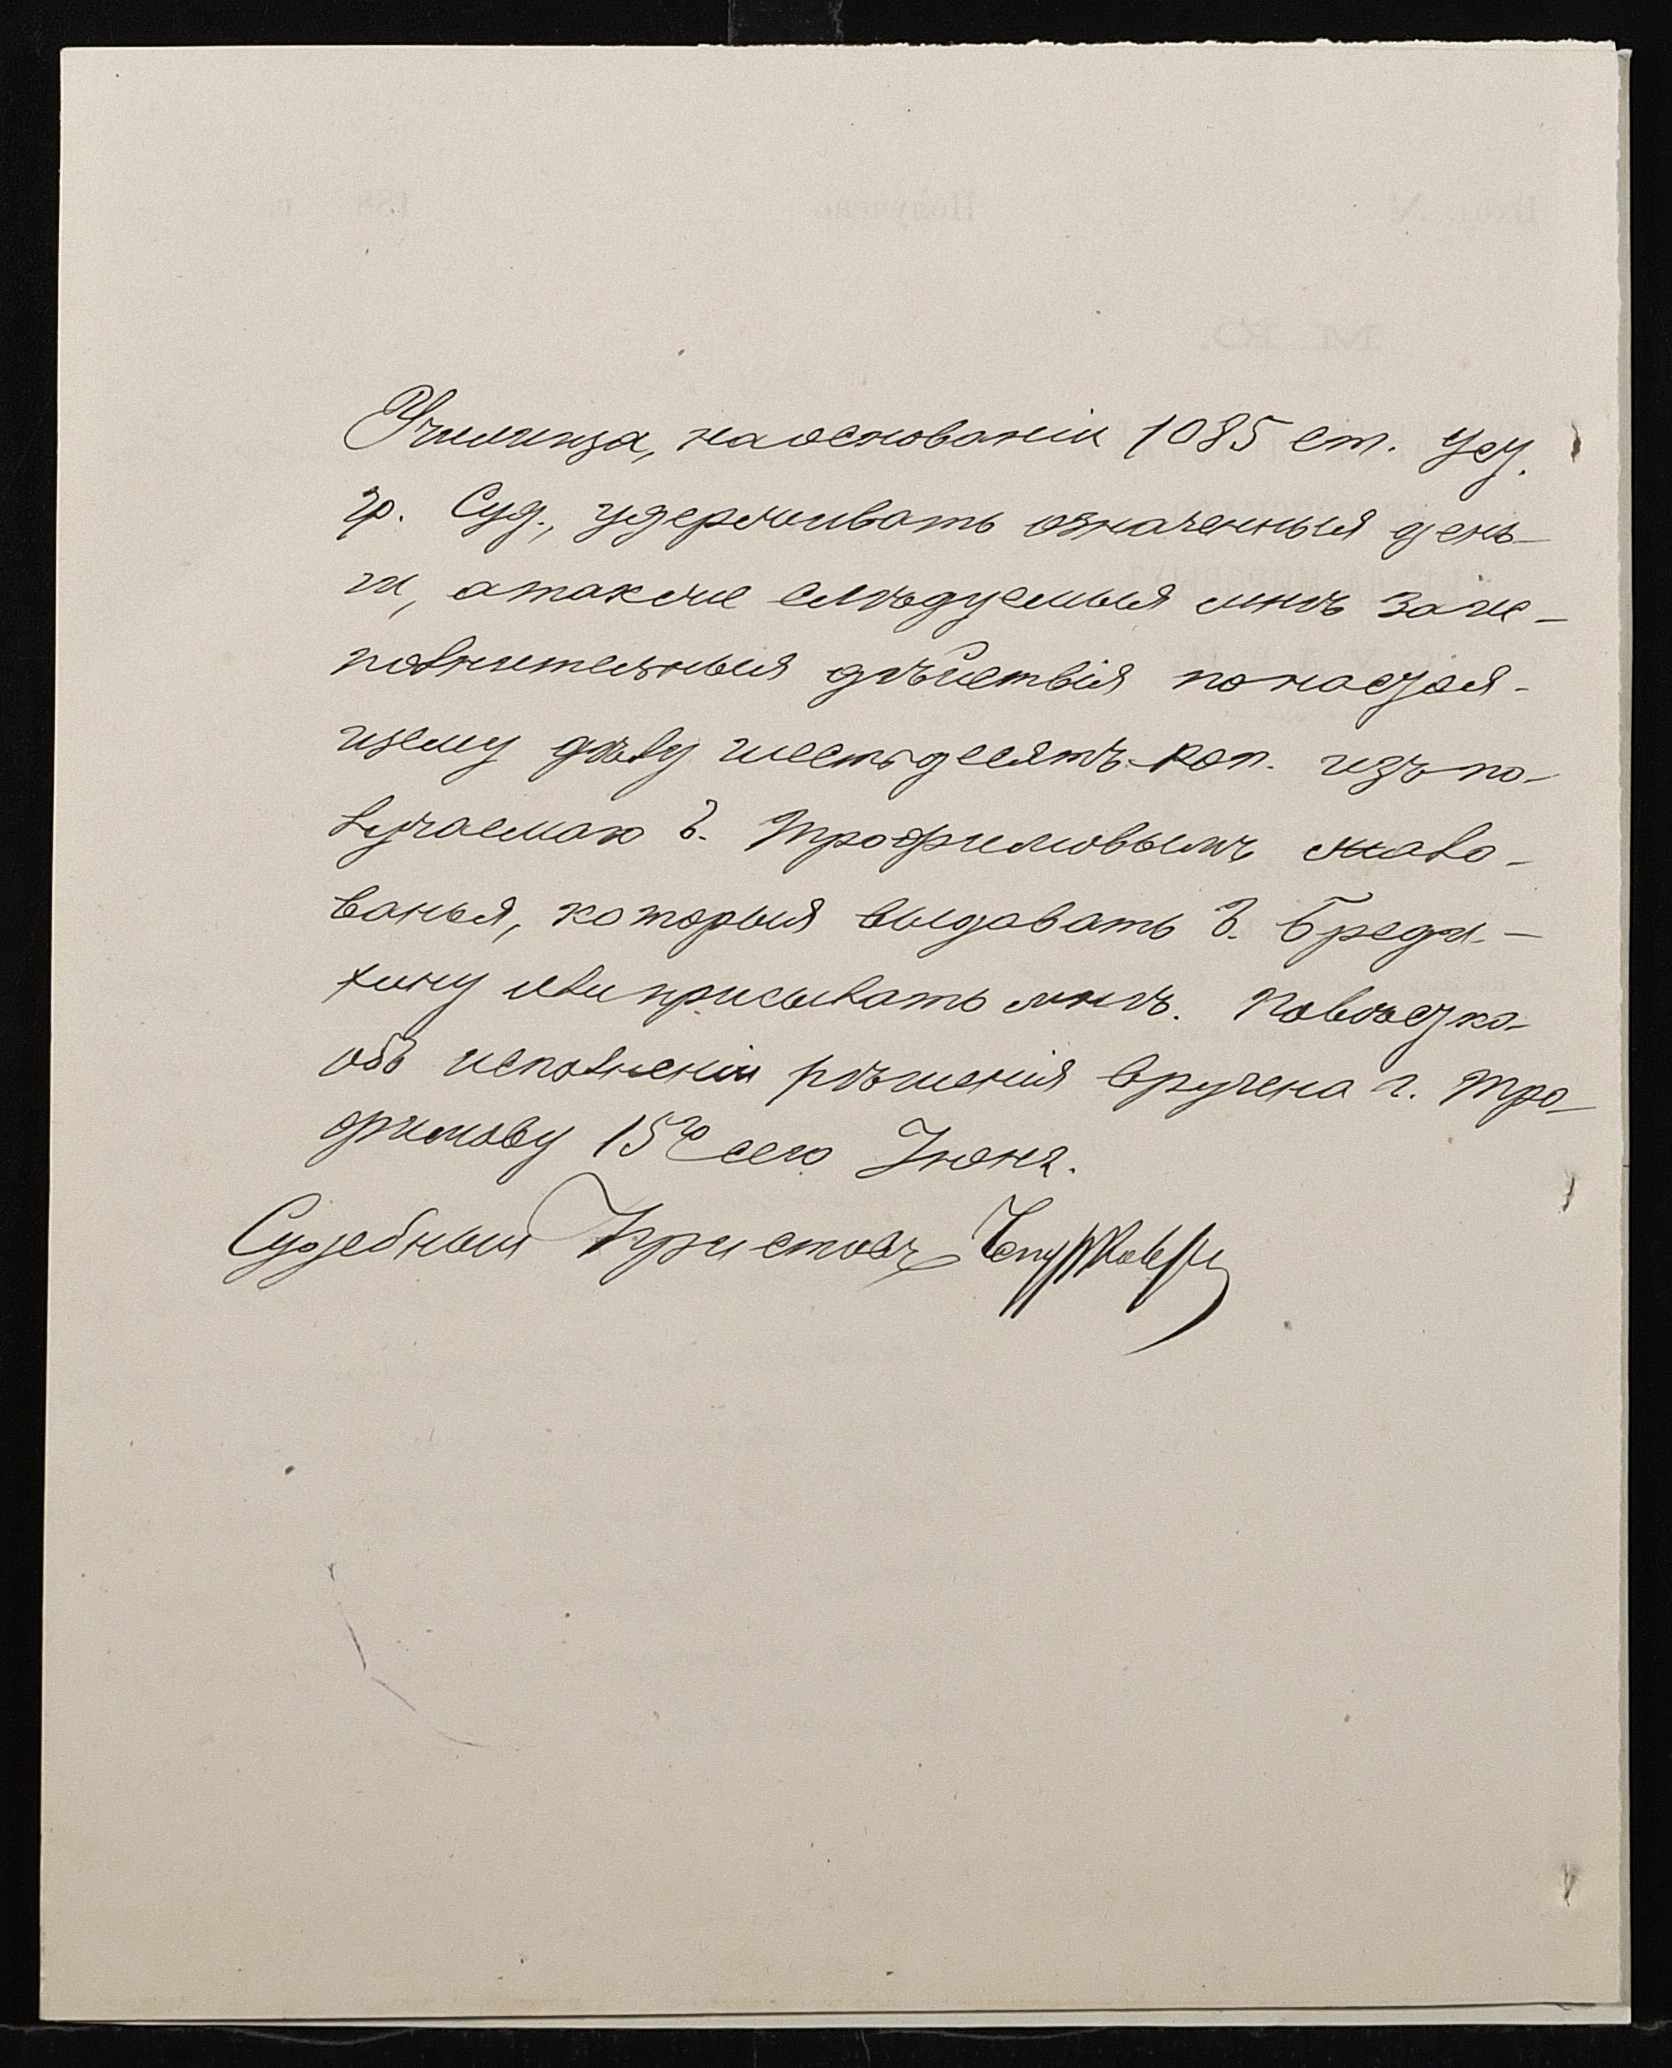 Училища, на основаніи 1085 ст. Уст.
гр. Суд., удерживать означенныя день-
ги, а также слѣдуемыя мнѣ за ис-
полнительныя дѣйствія по настоя-
щему дѣлу шестьдесятъ коп. изъ по-
лучаемаго г. Трофимовымъ жало-
ванья, которыя выдавать г. Бреди-
хину или присылать мнѣ. Повѣстка
объ исполненіи рѣшенія вручена г. Тро-
фимову 15го сего Іюня.
Судебный Приставъ